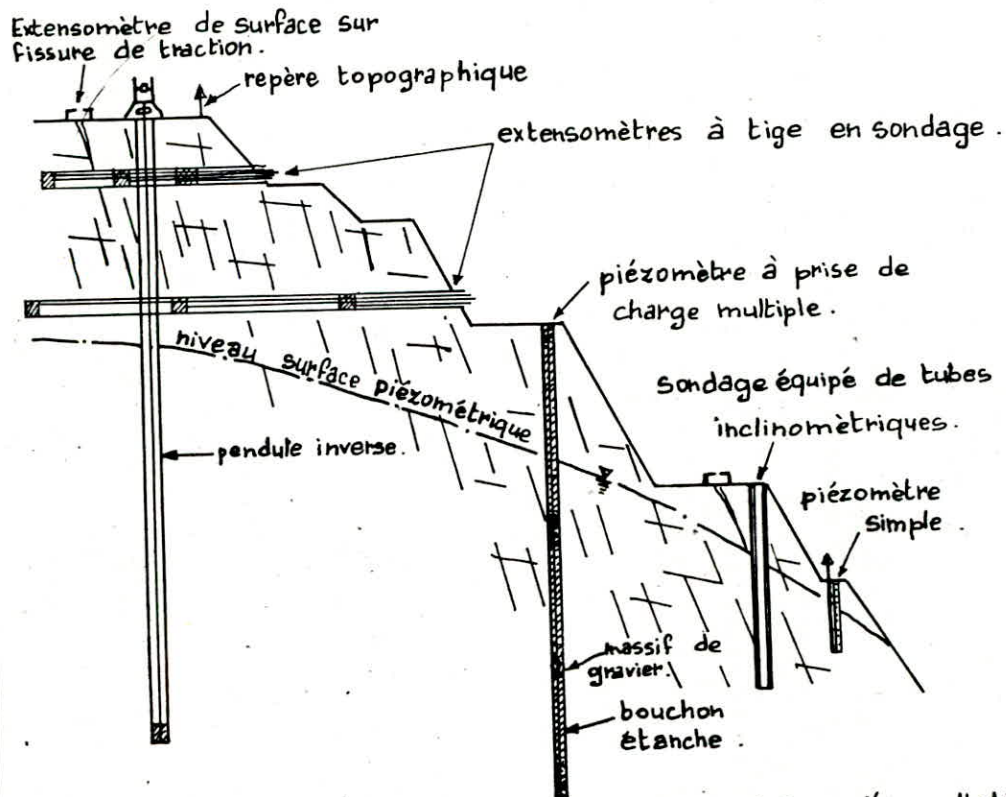 Extensomètre de surface sur
fissure de traction.
repère topographique
extensomètres à tige en sondage.
piézomètre à prise de
charge multiple.
niveau surface piézométrique
Sondage équipé de tubes
inclinomètriques.
pendule inverse.
piézomètre
simple.
massif de
gravier.
bouchon
étanche.